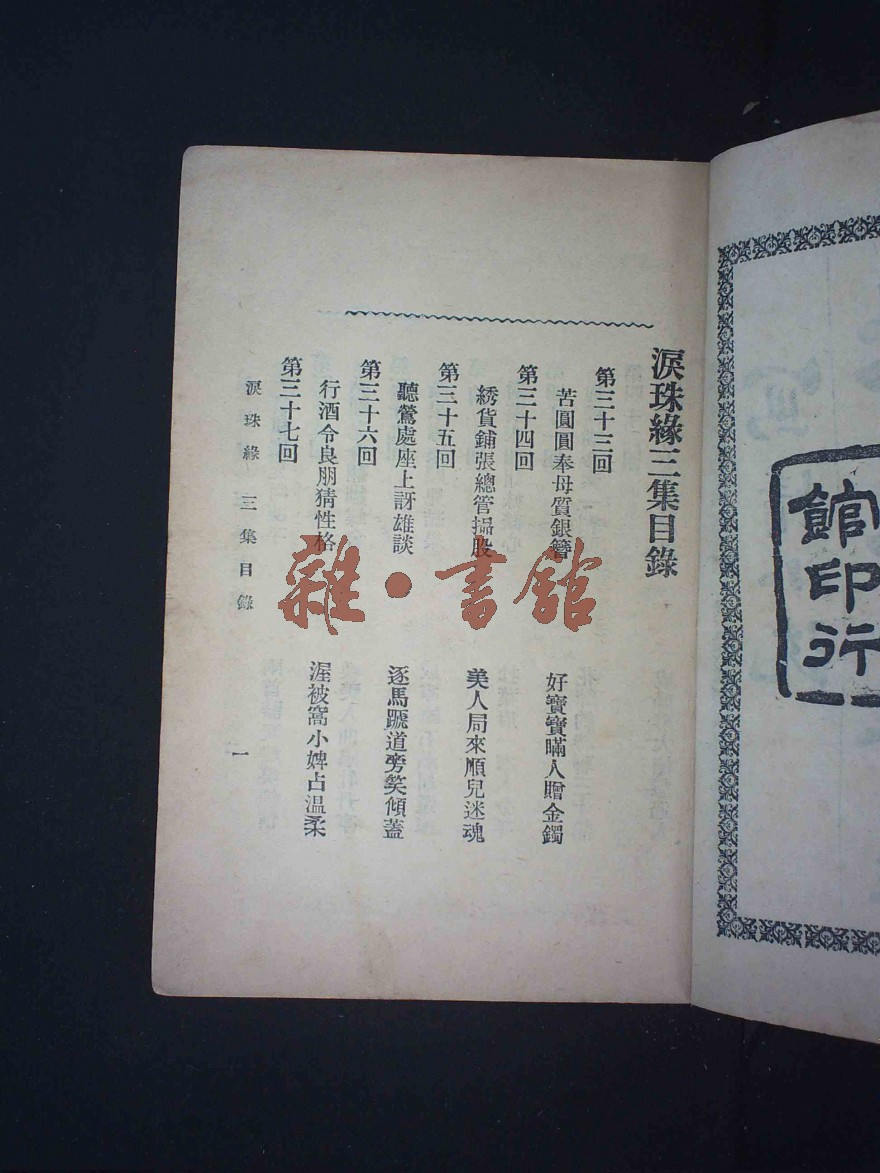 館
印
行
淚珠緣三集目錄
第三十三回
苦圓圓奉母質銀簪 好寶寶瞞人贈金鐲
第三十四回
綉貨鋪張總管搨股 美人局來順兒迷魂
第三十五回
聽鶯處座上訝雄談 逐馬蹏道旁笑傾蓋
第三十六回
行酒令良朋猜性格 渥被窩小婢占温柔
第三十七回
淚珠緣 三集目錄 一
雜·書館